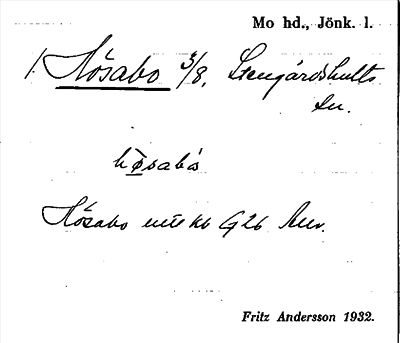 Mo hd., Jönk. l.
1. Hösabo 3/8, Stengårdshults
sn.
hösabo
Hösabo G26
Fritz Andersson 1932.